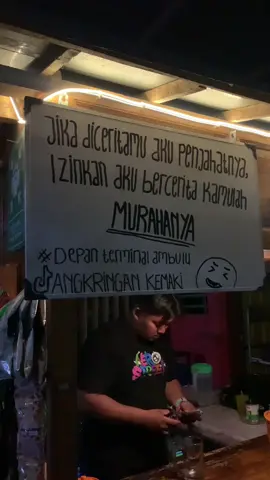 Jika diceritamu aku Penjahatnya,
Izinkan aku bercerita Kamulah
MURAHANYA
# Depan terminal ambulu
ANGKRINGAN KEMAKI